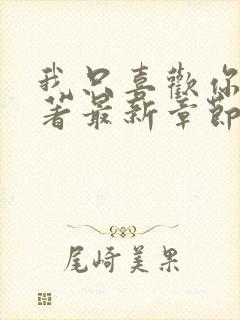 我只喜歡你
著最新章節
尾崎美果